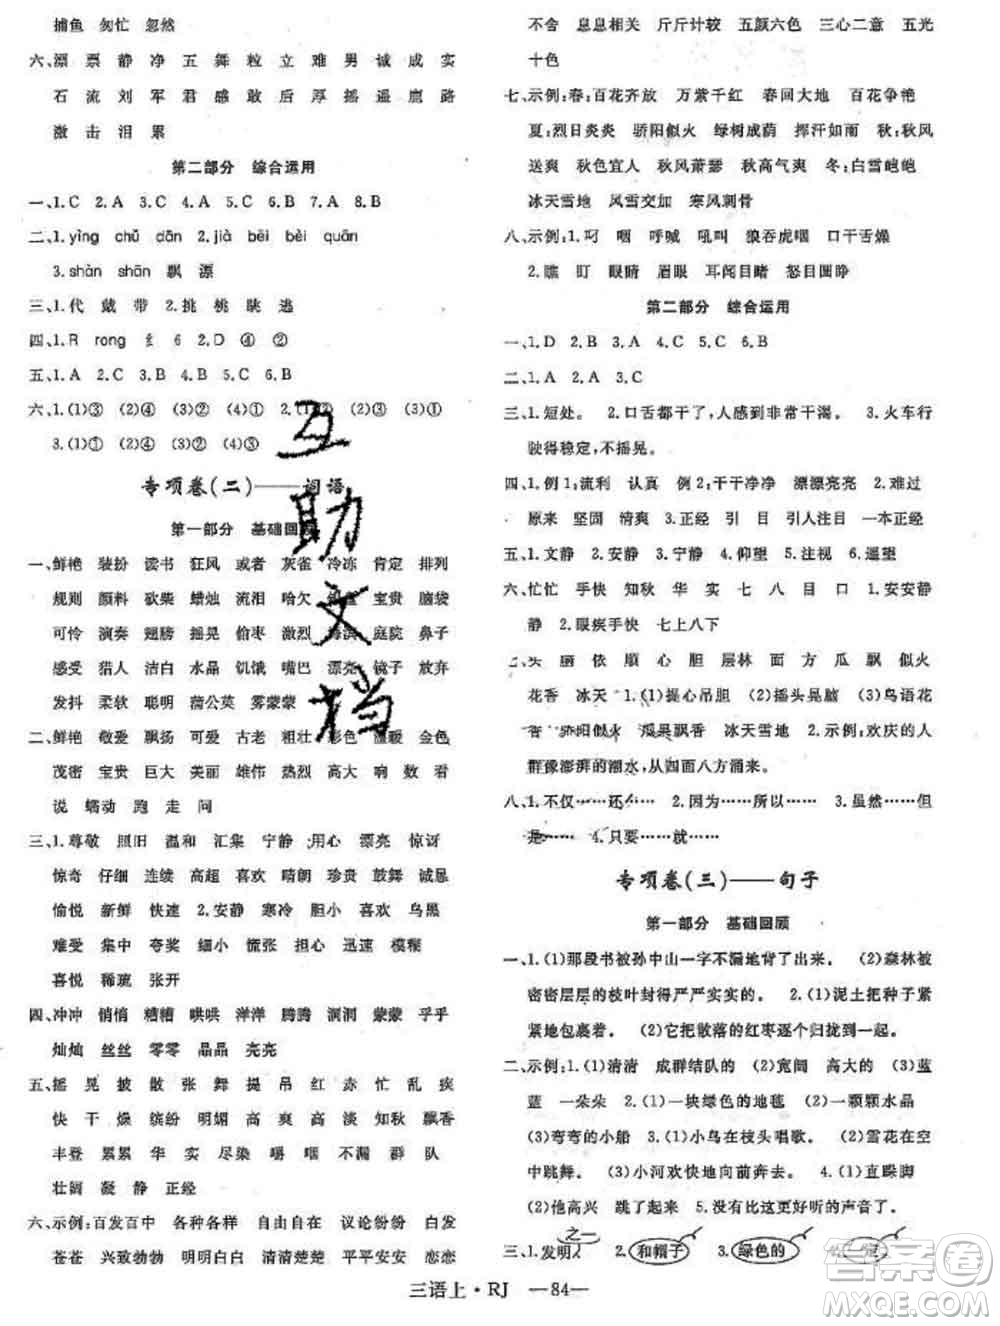 捕鱼 匆忙 忽然
六、漂 票 静 净 五 舞 粒 立 难 男 诚 成 实
石 流 刘 军 君 感 敢 后 厚 摇 遥 鹿 路
激 击 泪 累
第二部分 综合运用
一、1.C 2.A 3.C 4.A 5.C 6.B 7.A 8.A
二、1.yìng chǔ dān 2.jià bēi bèi quān
3.shàn shān 飘 漂
三、1.代 戴 带 2.挑 桃 跳 逃
四、1.R rong 纟 6 2.D ④ ②
五、1.A 2.C 3.B 4.A 5.C 6.B
六、1.(1)③ (2)④ (3)② (4)① 2.(1)② (2)① (3)①
3.(1)① (2)④ (3)② (4)③
专项卷(二)——词语
第一部分 基础回顾
一、鲜艳 装扮 读书 狂风 或者 灰雀 冷冻 肯定 排列
规则 颜料 砍柴 蜡烛 流泪 哈欠 宝贵 脑袋
可怜 演奏 翅膀 摇晃 偷枣 激烈 海滨 庭院 鼻子
感受 猎人 洁白 水晶 饥饿 嘴巴 漂亮 镜子 放弃
发抖 柔软 聪明 蒲公英 雾蒙蒙
二、鲜艳 敬爱 飘扬 可爱 古老 粗壮 彩色 温暖 金色
茂密 宝贵 巨大 美丽 雄伟 热烈 高大 响 数 看
说 蠕动 跑 走 问
三、1.尊敬 照旧 温和 汇集 宁静 用心 漂亮 惊讶
惊奇 仔细 连续 超高 喜欢 晴朗 珍贵 鼓舞 诚恳
愉悦 新鲜 快速 2.安静 寒冷 胆小 喜欢 乌黑
难受 集中 夸奖 细小 慌张 担心 迅速 模糊
喜悦 稀疏 张开
四、冲冲 悄悄 糟糟 哄哄 洋洋 腾腾 洞洞 蒙蒙 乎乎
灿灿 丝丝 零零 晶晶 亮亮
五、摇 晃 披 散 张 舞 提 吊 红 赤 忙 乱 疾
快 干 燥 缤纷 明媚 高 爽 高 淡 知秋 飘香
丰登 累累 华 实 尽染 嚼 咽 不漏 群 队
壮阔 凝 静 正经
六、示例:百发百中 各种各样 自由自在 议论纷纷 昏昏
苍苍 兴致勃勃 明明白白 清清楚楚 平平安安 恋恋
不舍 息息相关 斤斤计较 五颜六色 三心二意 五光
十色
七、示例:春:百花齐放 万紫千红 春回大地 百花争艳
夏:烈日炎炎 骄阳似火 绿树成荫 挥汗如雨 秋:秋风
送爽 秋色宜人 秋风萧瑟 秋高气爽 冬:白雪皑皑
冰天雪地 风雪交加 寒风刺骨
八、示例:1.叼 咽 呼喊 吼叫 狼吞虎咽 口干舌燥
2.瞧 盯 眼睛 眉眼 耳闻目睹 怒目圆睁
第二部分 综合运用
一、1.D 2.B 3.A 4.C 5.C 6.B
二、1.A 2.C 3.B 4.C
三、1.短处。 2.口舌都干了,人感到非常干渴。 3.火车行
驶得稳定,不摇晃。
四、1.例1:流利 认真 例2:干干净净 漂漂亮亮 2.难过
原来 坚固 清爽 3.正经 引 目 引人注目 一本正经
五、1.文静 2.安静 3.宁静 4.仰望 5.注视 6.遥望
六、忙忙 手快 知秋 华 实 七 八 目 口 1.安安静
静 2.眼疾手快 七上八下
头 丽 依 顺 心 胆 层林 面 方 瓜 飘 似火
花香 冰天 1.(1)提心吊胆 (2)摇头晃脑 (3)鸟语花
香 骄阳似火 瓜果飘香 冰天雪地 2.示例:欢庆的人
群像澎湃的潮水,从四面八方涌来。
八、1.不仅……还…… 2.因为……所以…… 3.虽然……但
是…… 4.只要……就……
专项卷(三)——句子
第一部分 基础回顾
一、1.(1)那段书被孙中山一字不漏地背了出来。 (2)森林被
密密层层的枝叶封得严严实实的。 2.(1)泥土把种子紧
紧地包裹着。 (2)它把散落的红枣逐个归拢到一起。
二、示例:1.(1)清清 成群结队的 (2)宽阔 高大的 (3)蓝
蓝 一朵朵 2.(1)一块绿色的地毯 (2)一颗颗水晶
(3)弯弯的小船 3.(1)小鸟在枝头唱歌。 (2)雪花在空
中跳舞。 (3)小河欢快地向前奔去。 4.(1)直跺脚
(2)他高兴 跳了起来 5.没有比这更好听的声音了。
三、1.发明 之一 2.和帽子 3.绿色的
三语上·RJ —84—
互
助
文
档
答案圈
MXQE.COM